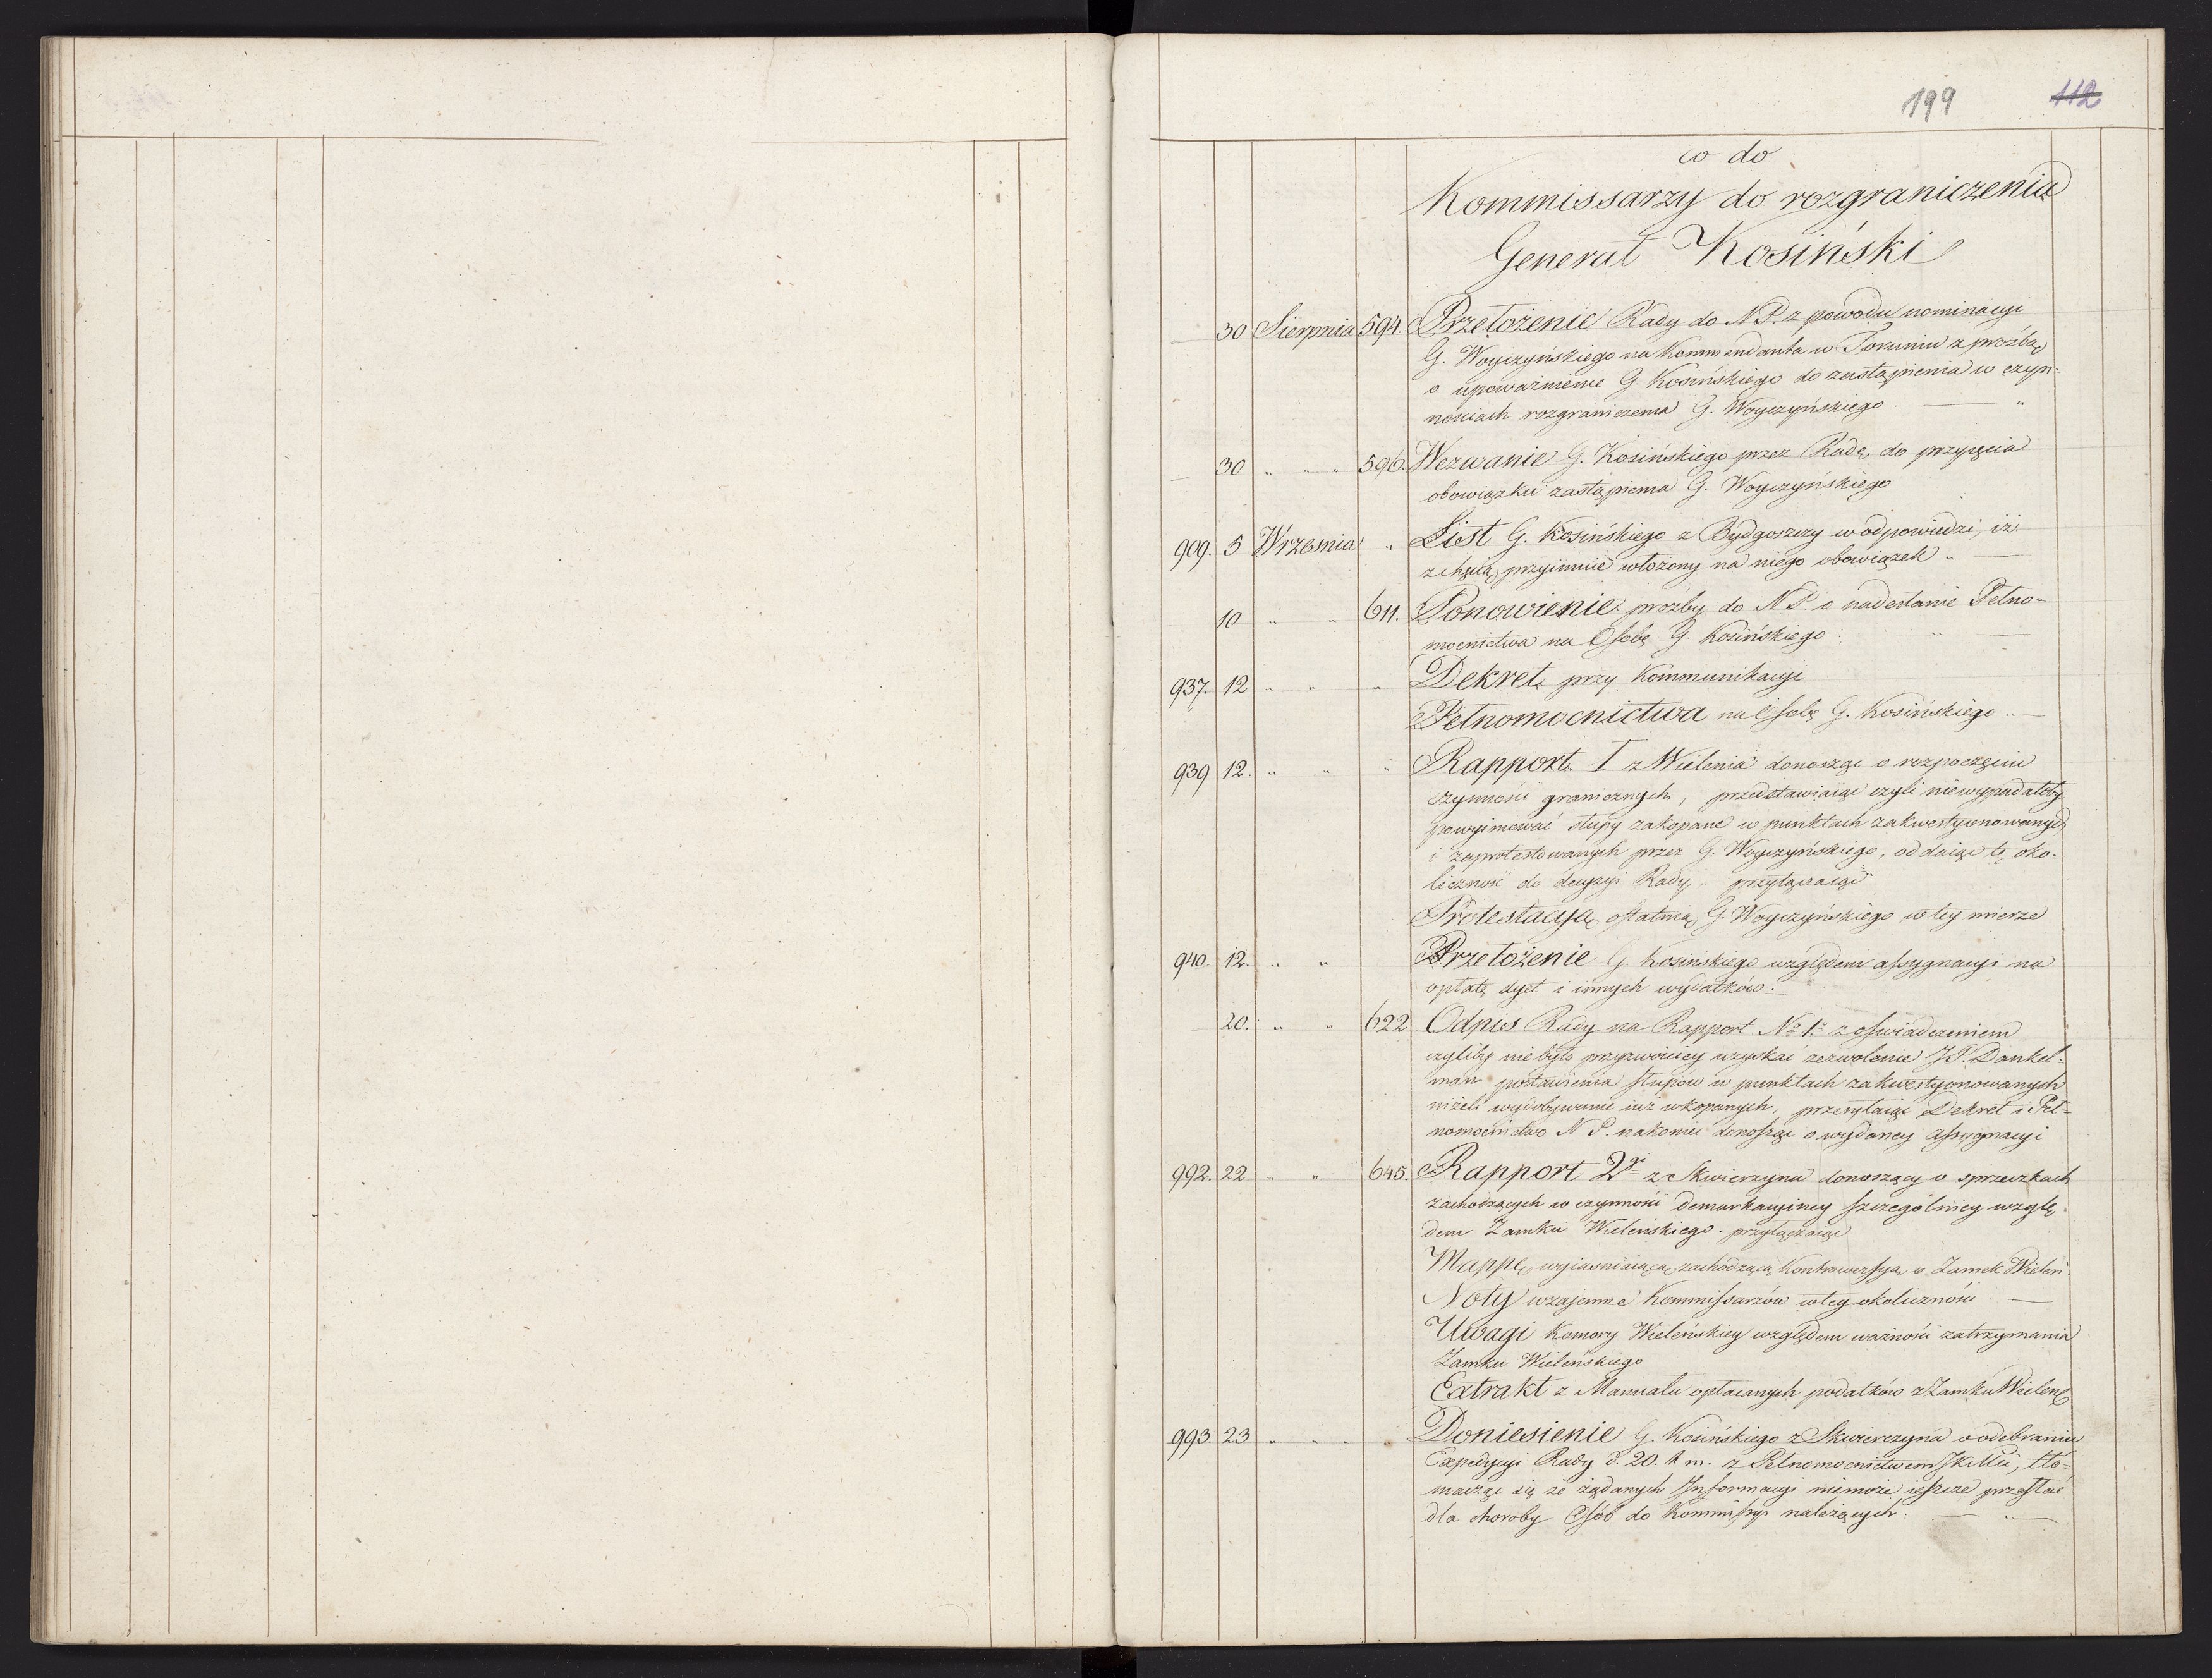 199 112
co do
Kommissarzy do rozgraniczenia
Generał Kosiński
30 Sierpnia 594. Przełożenie Rady do N.P. z powodu nominacyi
G. Woyczyńskiego na Kommendanta w Toruniu z prośbą
o upoważnienie G. Kosińskiego do zastąpienia w czyn-
nościach rozgraniczenia G. Woyczyńskiego. — "
30 " " " 596. Wezwanie G. Kosińskiego przez Radę do przyięcia
obowiązku zastąpienia G. Woyczyńskiego
909. 5 Wrzesnia " List G. Kosińskiego z Bydgoszczy w odpowiedzi, iż
z chęcią przyimuie włożony na niego obowiązek " —
10 " " 611. Ponowienie prożby do N.P. o nadesłanie Pełno-
mocnictwa na Osobę G. Kosińskiego: " —
937. 12 " " " Dekret przy Kommunikacyi
Pełnomocnictwa na Osobę G. Kosińskiego .. —
939 12. " " " Rapport I z Wielenia donosząc o rozpoczęciu
czynności granicznych, przedstawiaiąc czyli niewypadałoby
powyimować słupy zakopane w punktach zakwestyonowanych
i zaprotestowanych przez G. Woyczyńskiego, oddaiąc tę oko-
liczność do decyzyi Rady, przyłączaiąc
Protestacyą ostatnią G. Woyczyńskiego w tey mierze
940. 12. " " Przełożenie G. Kosińskiego względem assygnacyi na
opłatę dyet i innych wydatków. —
20. " " 622 Odpis Rady na Rapport No 1o z oswiadczeniem
czyliby niebyło przyzwoiciey uzyskać zezwolenie J.P. Dankel-
man postawienia słupów w punktach zakwestyonowanych
niżeli wydobywanie iuż wkopanych, przesyłaiąc Dekret i Peł-
nomocnictwo N.P. nakoniec donosząc o wydaney assygnacyi
992. 22 " " 645. Rapport 2gi z Skwierzyna donoszący o sprzeczkach
zachodzących w czynności demarkacyiney szczególniey wzglę
dem Zamku Wieleńskiego. przyłączaiąc
Mappę wyiaśniaiącą zachodzącą Kontrowersyą o Zamek Wieleń.
Noty wzajemne Kommissarzów w tey okoliczności. —
Uwagi Komory Wieleńskiey względem ważności zatrzymania
Zamku Wieleńskiego
Extrakt z Manuału opłacanych podatków z Zamku Wieleń
993. 23 " " " Doniesienie G. Kosińskiego z Skwierzyna o odebraniu
Expedycyi Rady d. 20. h m. z Pełnomocnictwem, tło-
macząc się że żądanych Informacyi niemoże ieszcze przesłać
dla choroby Osób do Kommissyi należących. — . —